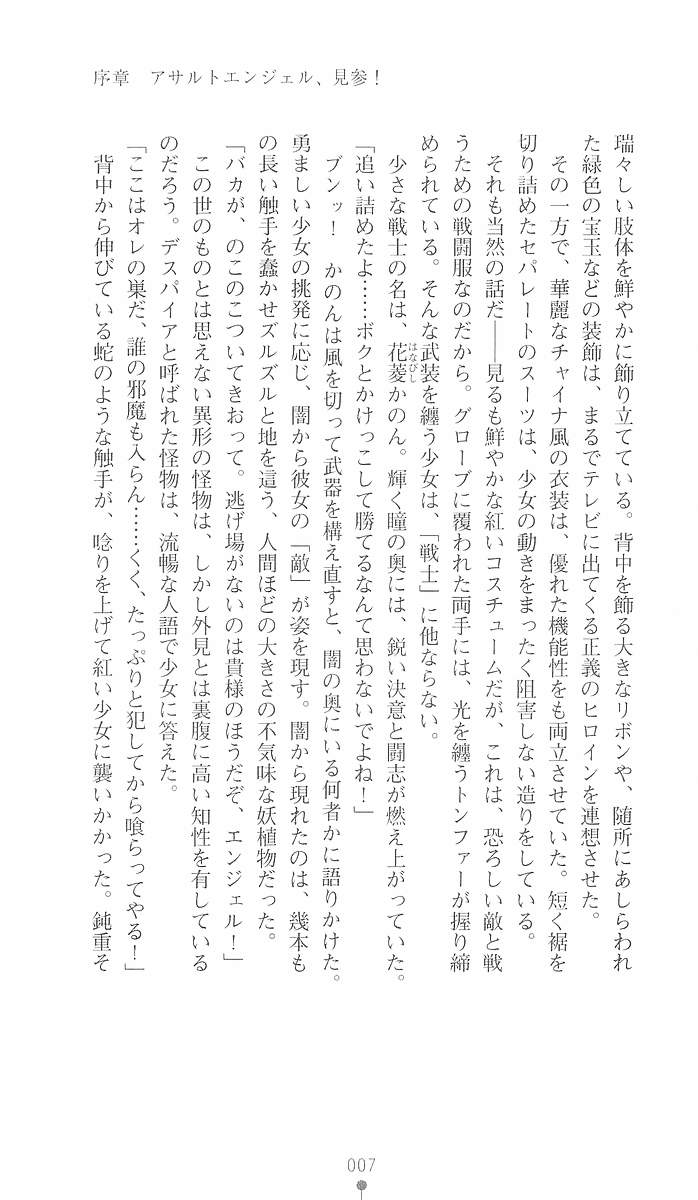 序章　アサルトエンジェル、見参！
瑞々しい肢体を鮮やかに飾り立てている。背中を飾る大きなリボンや、随所にあしらわれ
た緑色の宝玉などの装飾は、まるでテレビに出てくる正義のヒロインを連想させた。
　その一方で、華麗なチャイナ風の衣装は、優れた機能性をも両立させていた。短く裾を
切り詰めたセパレートのスーツは、少女の動きをまったく阻害しない造りをしている。
　それも当然の話だ――見るも鮮やかな紅いコスチュームだが、これは、恐ろしい敵と戦
うための戦闘服なのだから。グローブに覆われた両手には、光を纏うトンファーが握り締
められている。そんな武装を纏う少女は、「戦士」に他ならない。
　少さな戦士の名は、花菱かのん。輝く瞳の奥には、鋭い決意と闘志が燃え上がっていた。
はなびし
「追い詰めたよ……ボクとかけっこして勝てるなんて思わないでよね！」
　ブンッ！　かのんは風を切って武器を構え直すと、闇の奥にいる何者かに語りかけた。
勇ましい少女の挑発に応じ、闇から彼女の「敵」が姿を現す。闇から現れたのは、幾本も
の長い触手を蠢かせズルズルと地を這う、人間ほどの大きさの不気味な妖植物だった。
「バカが、のこのこついてきおって。逃げ場がないのは貴様のほうだぞ、エンジェル！」
　この世のものとは思えない異形の怪物は、しかし外見とは裏腹に高い知性を有している
のだろう。デスパイアと呼ばれた怪物は、流暢な人語で少女に答えた。
「ここはオレの巣だ、誰の邪魔も入らん……くく、たっぷりと犯してから喰らってやる！」
　背中から伸びている蛇のような触手が、唸りを上げて紅い少女に襲いかかった。鈍重そ
007